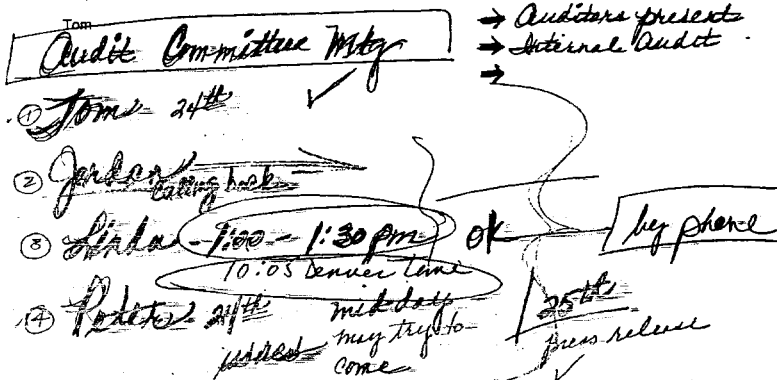 Tom
Audit Committee Mtg
→ Auditors present
→ Internal Audit
→
① Tom 24th ✓
② Jordan calling back
③ Linda - 9:00 - 1:30 pm OK by phone
10:05 Denver time
④ 24th mid day
may try to
come
25th
press release ✓